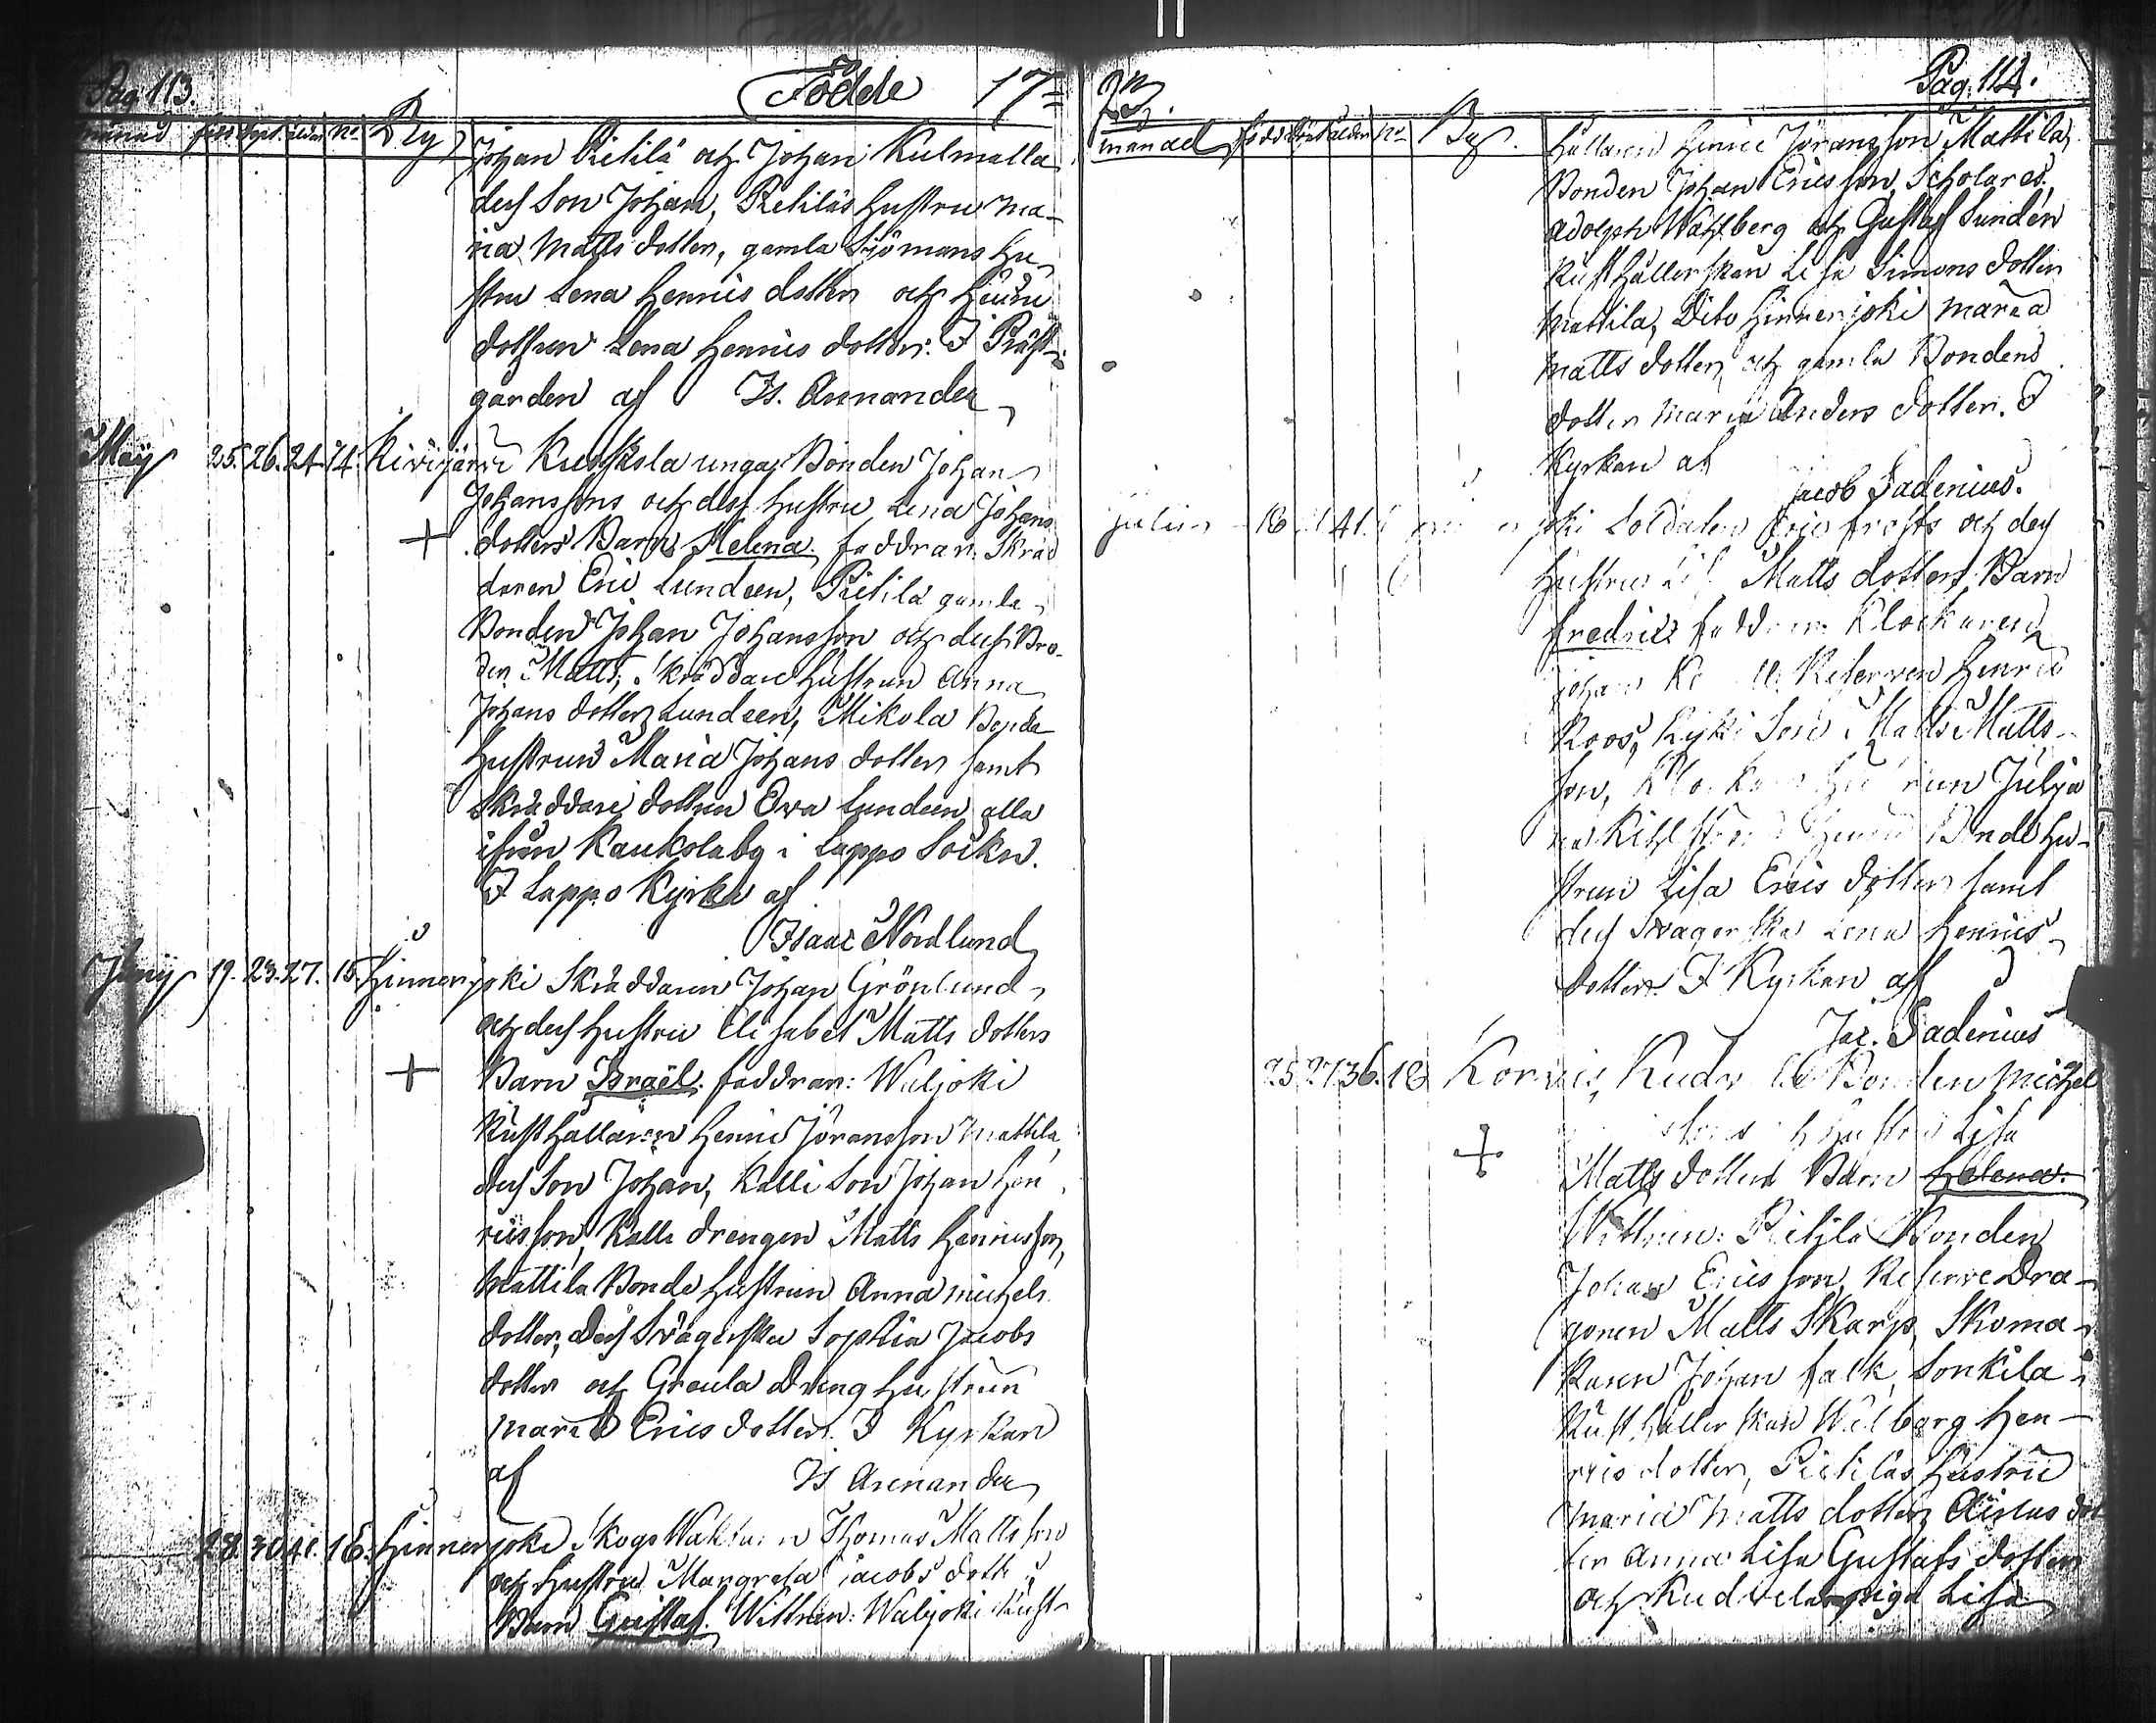 Pag. 113.
Födde 17
månad född döpt ålder no. By
Johan Pietilä och Johan Kulmalla
dess Son Johan, Pietiläs hustru Ma-
ria Matts dotter, gamla Siömans hu-
stru Lena Henrics dotter och
dottren Lena Henrics dotter. I Präst-
gården af Is. Arenander
Maij 25. 26. 24. 14. Kivijärvi Kuoskola unga Bonden Johan
Johanssons och dess hustru Lena Johans
dotters Barn Helena. faddran: Skräd
daren Eric Lundeen, Pietilä gamla
Bonden Johan Johansson och dess Bro-
der Matts, Skräddare hustrun Anna
Johans dotter Lundeen, Mikola Bonda
hustrun Maria Johans dotter samt
Skräddare dottren Ewa Lundeen alla
ifrån Kaukolaby i Lappo Sockn.
I Lappo Kyrka af
Isaac Nordlund
Junij 19. 23. 27. 15. Hinnerjoki Skräddaren Johan Grönlund
och dess hustru Elisabet Matts dotters
Barn Israël. faddran: Waljoki
Rusthållaren Henric Jöransson Mattila,
dess Son Johan, Kalli Son Johan Hen
ricsson, Kalli drengen Matts Henricsson,
Mattila Bonde hustrun Anna Michels
dotter, dess Swägerska Sophia Jacobs
dotter och Greula Dreng hustrun
Maria Erics dotter. I Kyrkan
af Is Arenander
28. 30. 41. 16. Hinnerjoki Skogs Waktaren Thomas Matts son
och hustru Margreta Jacobs dotters
Barn Gustaf. Wittnen: Waljoki Rust-
Pag. 114.
månad född döpt ålder no. By.
hållaren Henric Jöransson Mattila,
Bonden Johan Ericsson, Scholares.
Adolph Wahlberg och Gustaf Sundén
Rusthållerskan Lisa Simons dotter
Mattila, Dito Hinnerjoki Maria
Matts dotter och gamla Bondens
dotter Maria Anders dotter. I
Kyrkan af
Jacob Fadenius.
Julius 16 41. joki Soldaten Eric Frosts och dess
hustru Matts dotters Barn
Fredric faddran Klockaren
Johan Reserven Henric
Roos, Son Matts Matts-
son, Julja
na Bonde hu-
strun Lisa Erics dotter samt
dess Swägerska Lena Henrics
dotter. I Kyrkan af
Jac. Fadenius
25. 27. 36. 18 Korvois, Bonden Michel
hustru Lisa
Matts dotters Barn Helena.
Wittnen: Pietilä Bonden
Johan Ericsson, Reserve Dra-
gonen Matts Skarp, Skoma-
karen Johan Falk, Sonkila
Rusthållerskan Wilborg Hen-
rics dotter, Pietiläs hustru
Maria Matts dotter, dot-
ter Anna Lisa Gustafs dotter
och piga Lisa